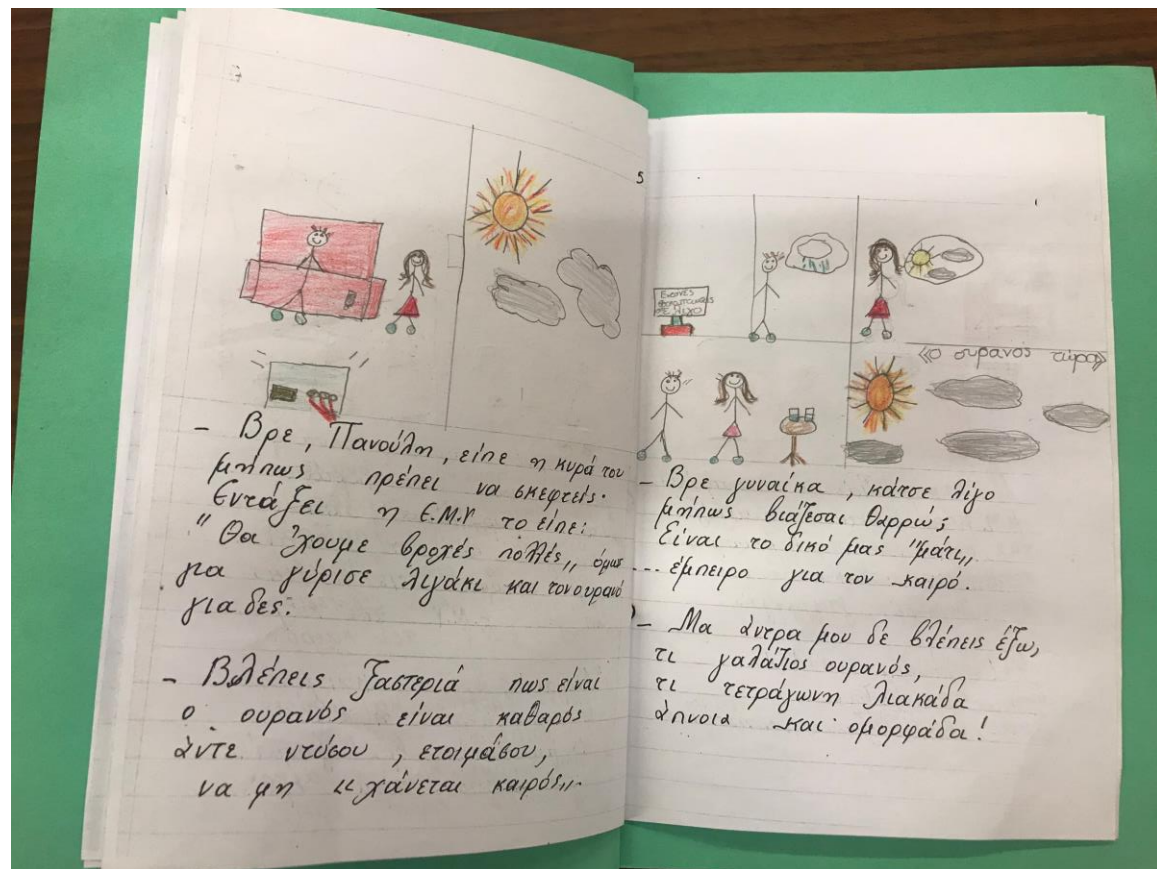 - Βρε, Πανούλη, είπε η κυρά του
μήπως πρέπει να σκεφτείς.
Εντάξει η Ε.Μ.Υ το είπε:
"Θα 'χουμε βροχές πολλές,, όμως
για γύρισε λιγάκι και τον ουρανό
για δες.
- Βλέπεις ξαστεριά πως είναι
ο ουρανός είναι καθαρός
άντε ντύσου, ετοιμάσου,
να μη «χάνεται καιρός,,.
5
ΣΕ ΛΙΓΟ
«Ο ουρανός τώρα»
- Βρε γυναίκα, κάτσε λίγο
μήπως βιάζεσαι θαρρώ;
Είναι το δικό μας "μάτι,,
... έμπειρο για τον καιρό.
- Μα άντρα μου δε βλέπεις έξω,
τι γαλάζιος ουρανός,
τι τετράγωνη λιακάδα
άπνοια και ομορφάδα!